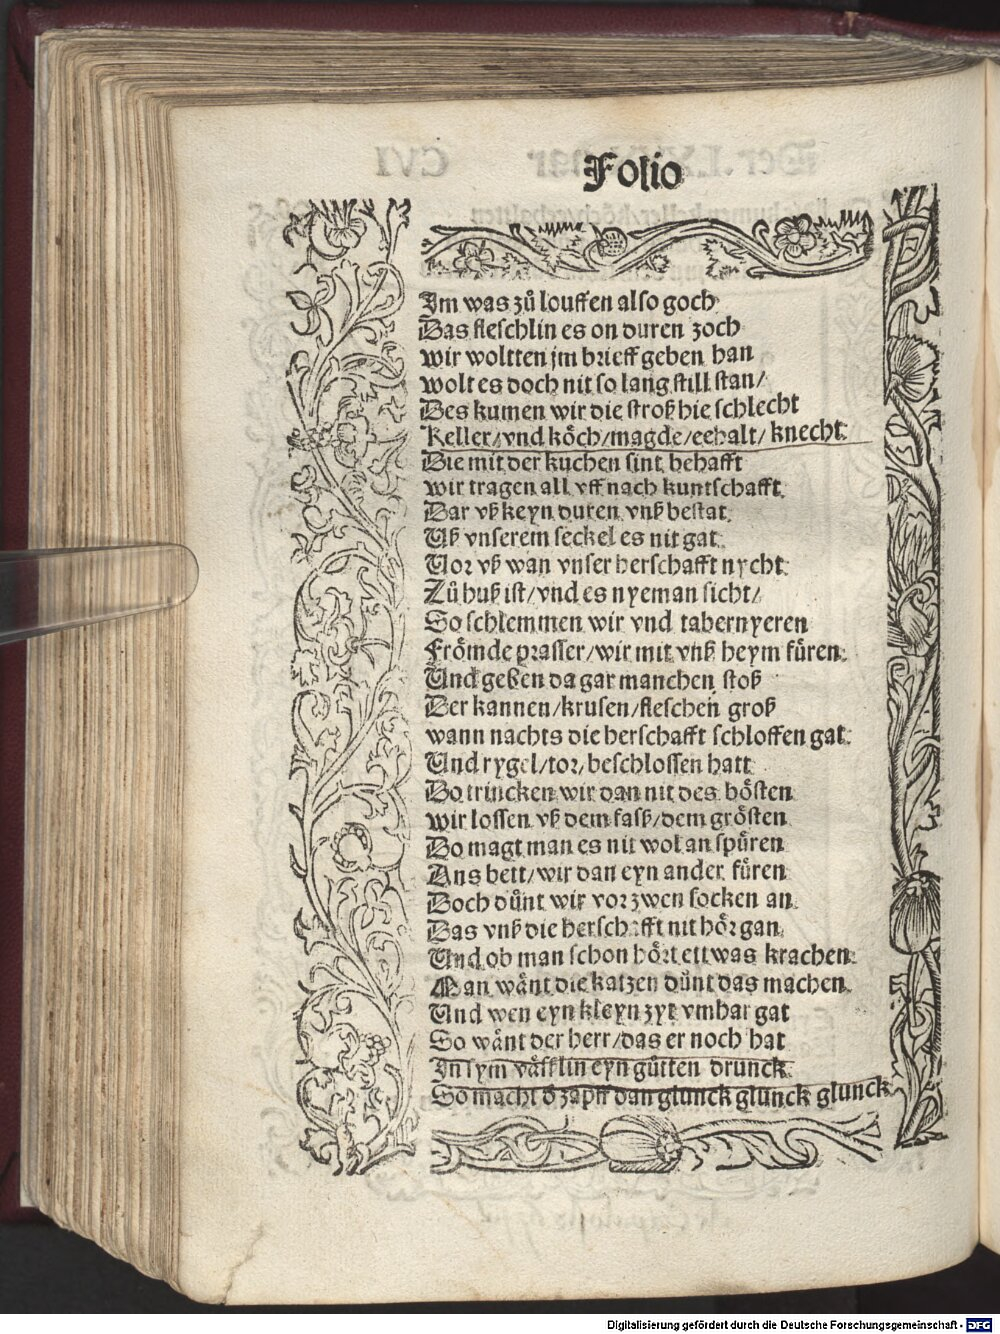 Folio
Im was zů louffen also goch
Das fleschlin es on duren zoch
wir woltten jm brieff geben han
wolt es doch nit so lang still stan/
Des kumen wir die stroß hie schlecht
Keller/vnd köch/magde/eehalt/knecht
Die mit der kuchen sint behafft
wir tragen all vff nach kuntschafft
Dar vß keyn duren vnß bestat
Uß vnserem seckel es nit gat
Vor vß wan vnser herschafft nycht
Zů huß ist/vnd es nyeman sicht/
So schlemmen wir vnd tabernyeren
Frömde prasser/wir mit vnß heym füren
Und geben da gar manchen stoß
Der kannen/krusen/fleschen groß
wann nachts die herschafft schloffen gat
Und rygel/tor/beschlossen hatt
Do trincken wir dan nit des bösten
wir lossen vß dem faß/dem grösten
Do magt man es nit wol an spüren
Ans bett/wir dan eyn ander füren
Doch důnt wir vor zwen socken an
Das vnß die herschafft nit hör gan
Und ob man schon hört ettwas krachen
Man wänt die katzen důnt das machen
Und wen eyn kleyn zyt vmbar gat
So wänt der herr/das er noch hat
In sym väßlin eyn gůtten drunck
So macht d zapff dan glunck glunck glunck
Digitalisierung gefördert durch die Deutsche Forschungsgemeinschaft - DFG